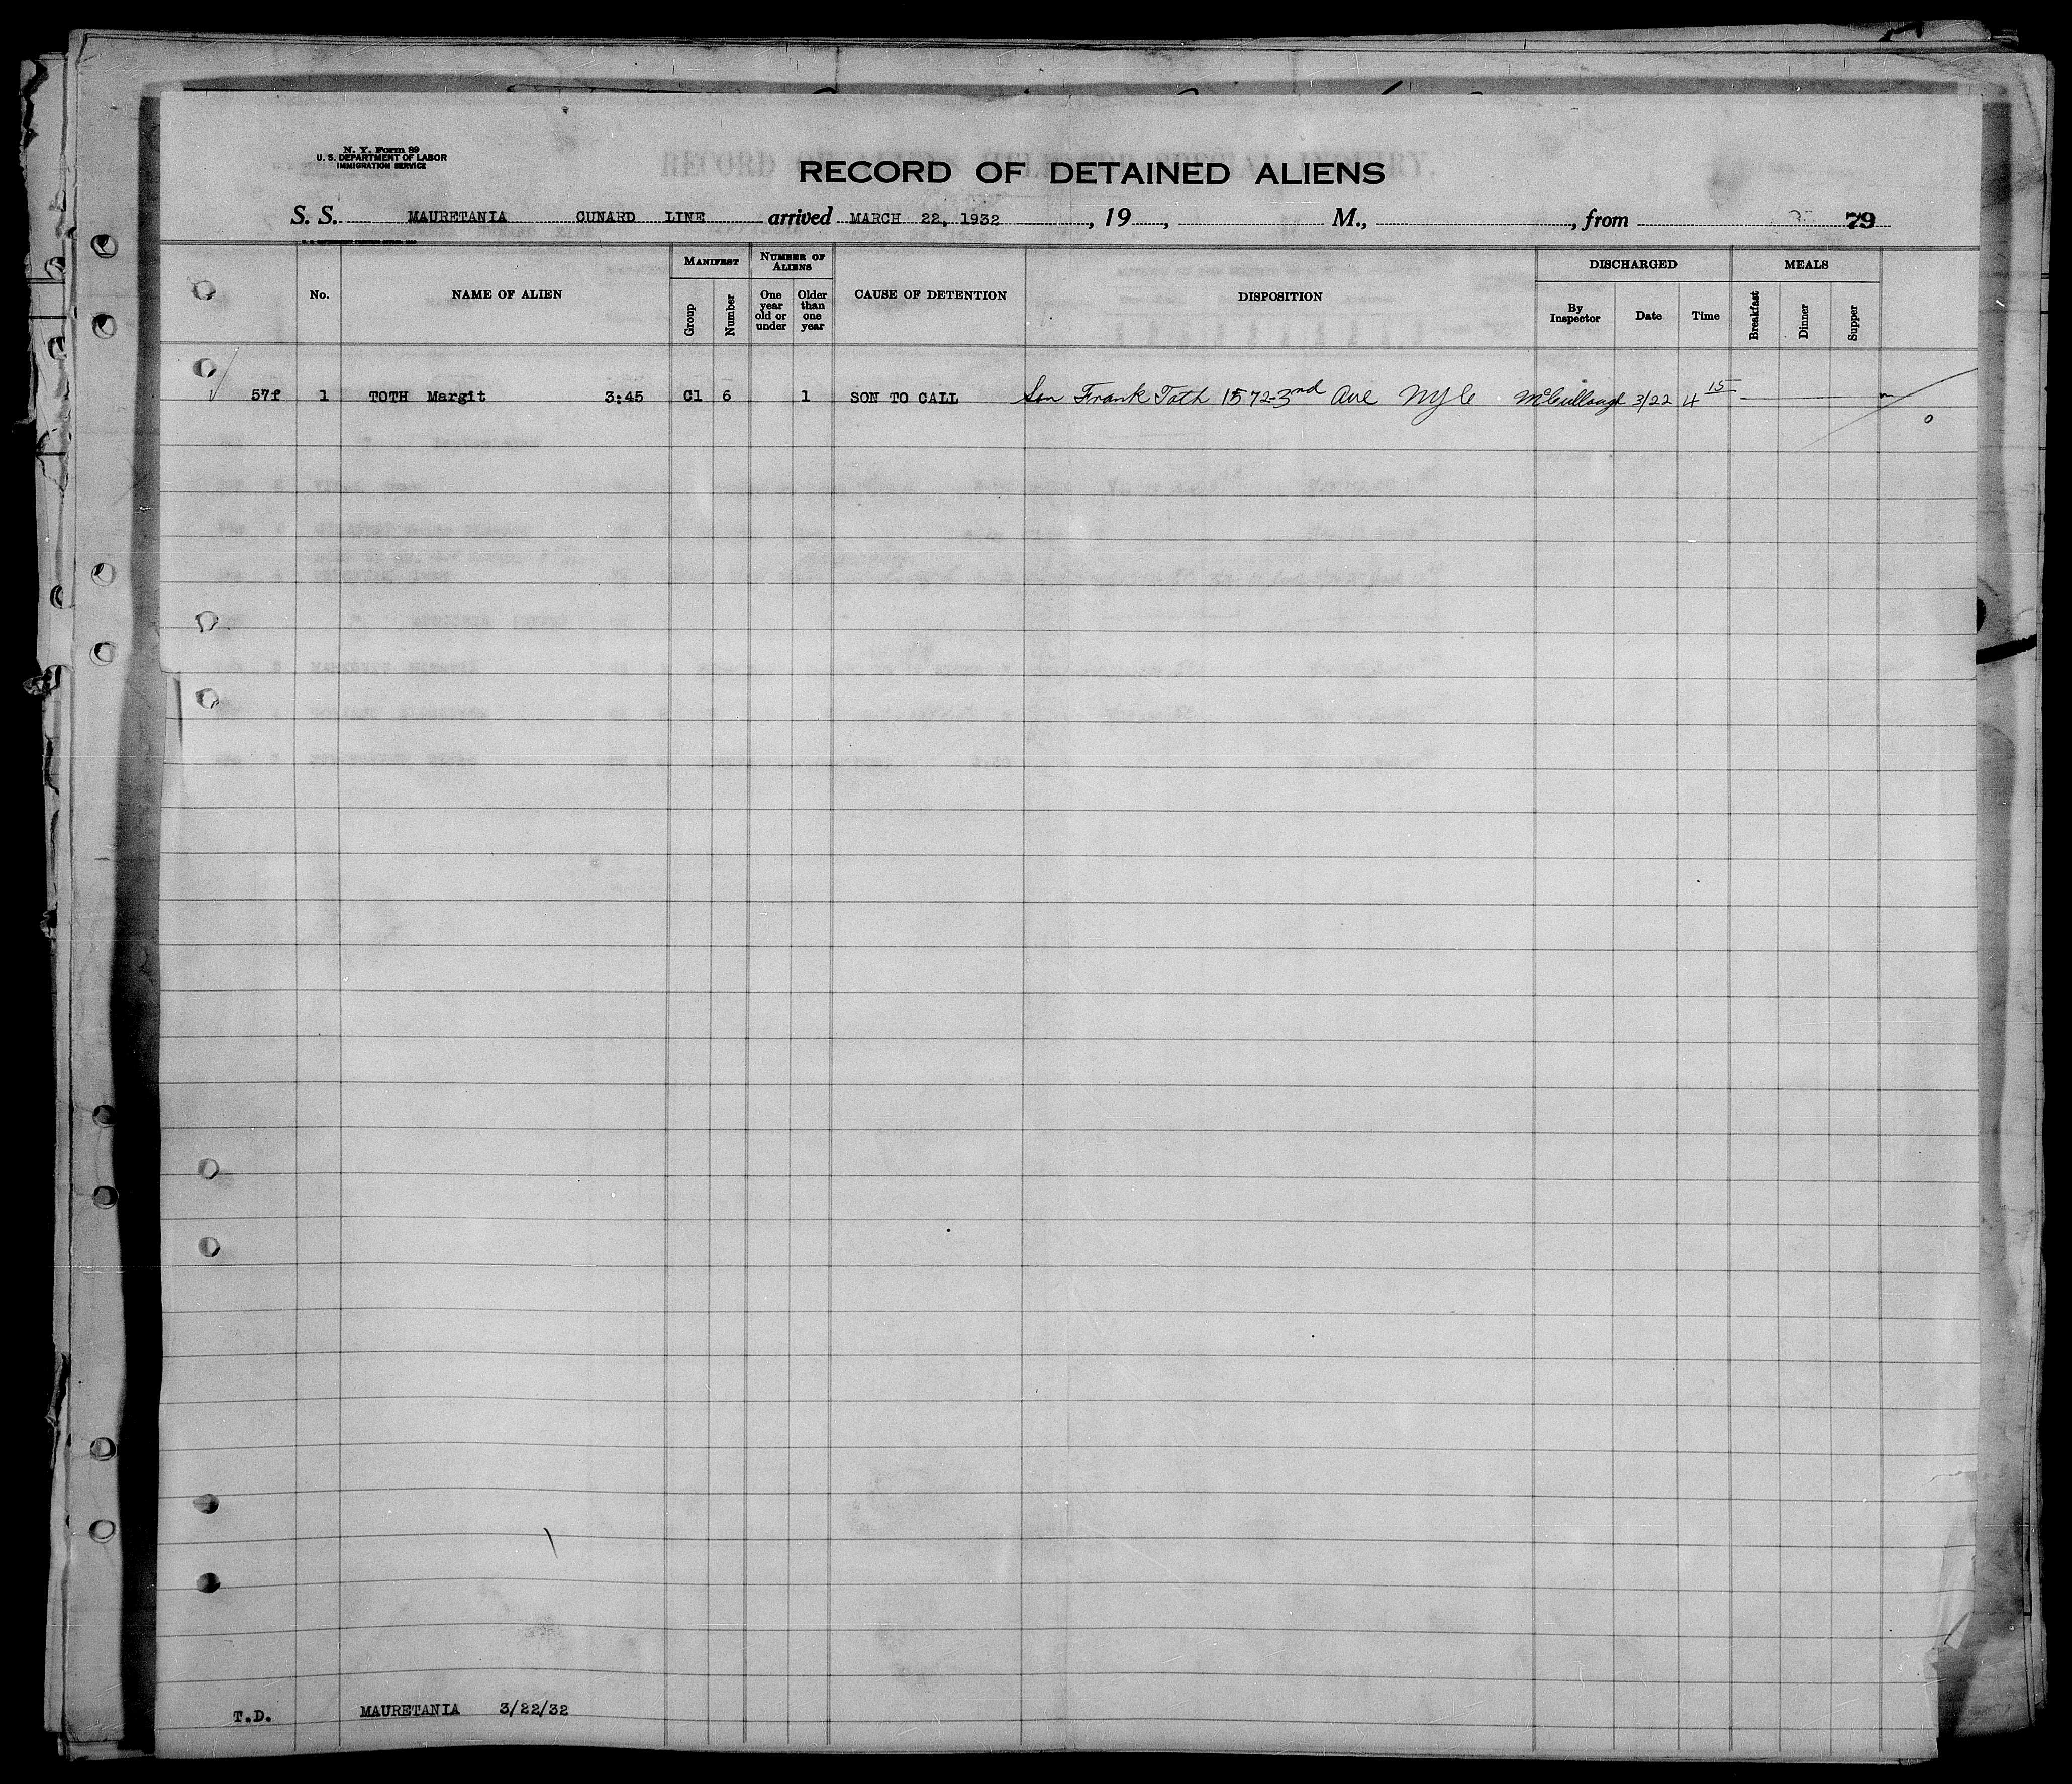 N. Y. Form 89
U. S. DEPARTMENT OF LABOR
IMMIGRATION SERVICE
RECORD OF DETAINED ALIENS
S. S. MAURETANIA CUNARD LINE arrived MARCH 22, 1932, 19 , M., , from 79
No. NAME OF ALIEN MANIFEST Group Number NUMBER OF ALIENS One year old or under Older than one year CAUSE OF DETENTION DISPOSITION DISCHARGED By Inspector Date Time MEALS Breakfast Dinner Supper
57f 1 TOTH Margit 3:45 Cl 6 1 SON TO CALL Son Frank Toth 1572-3rd Ave NYC McCullough 3/22 4 15
T.D. MAURETANIA 3/22/32